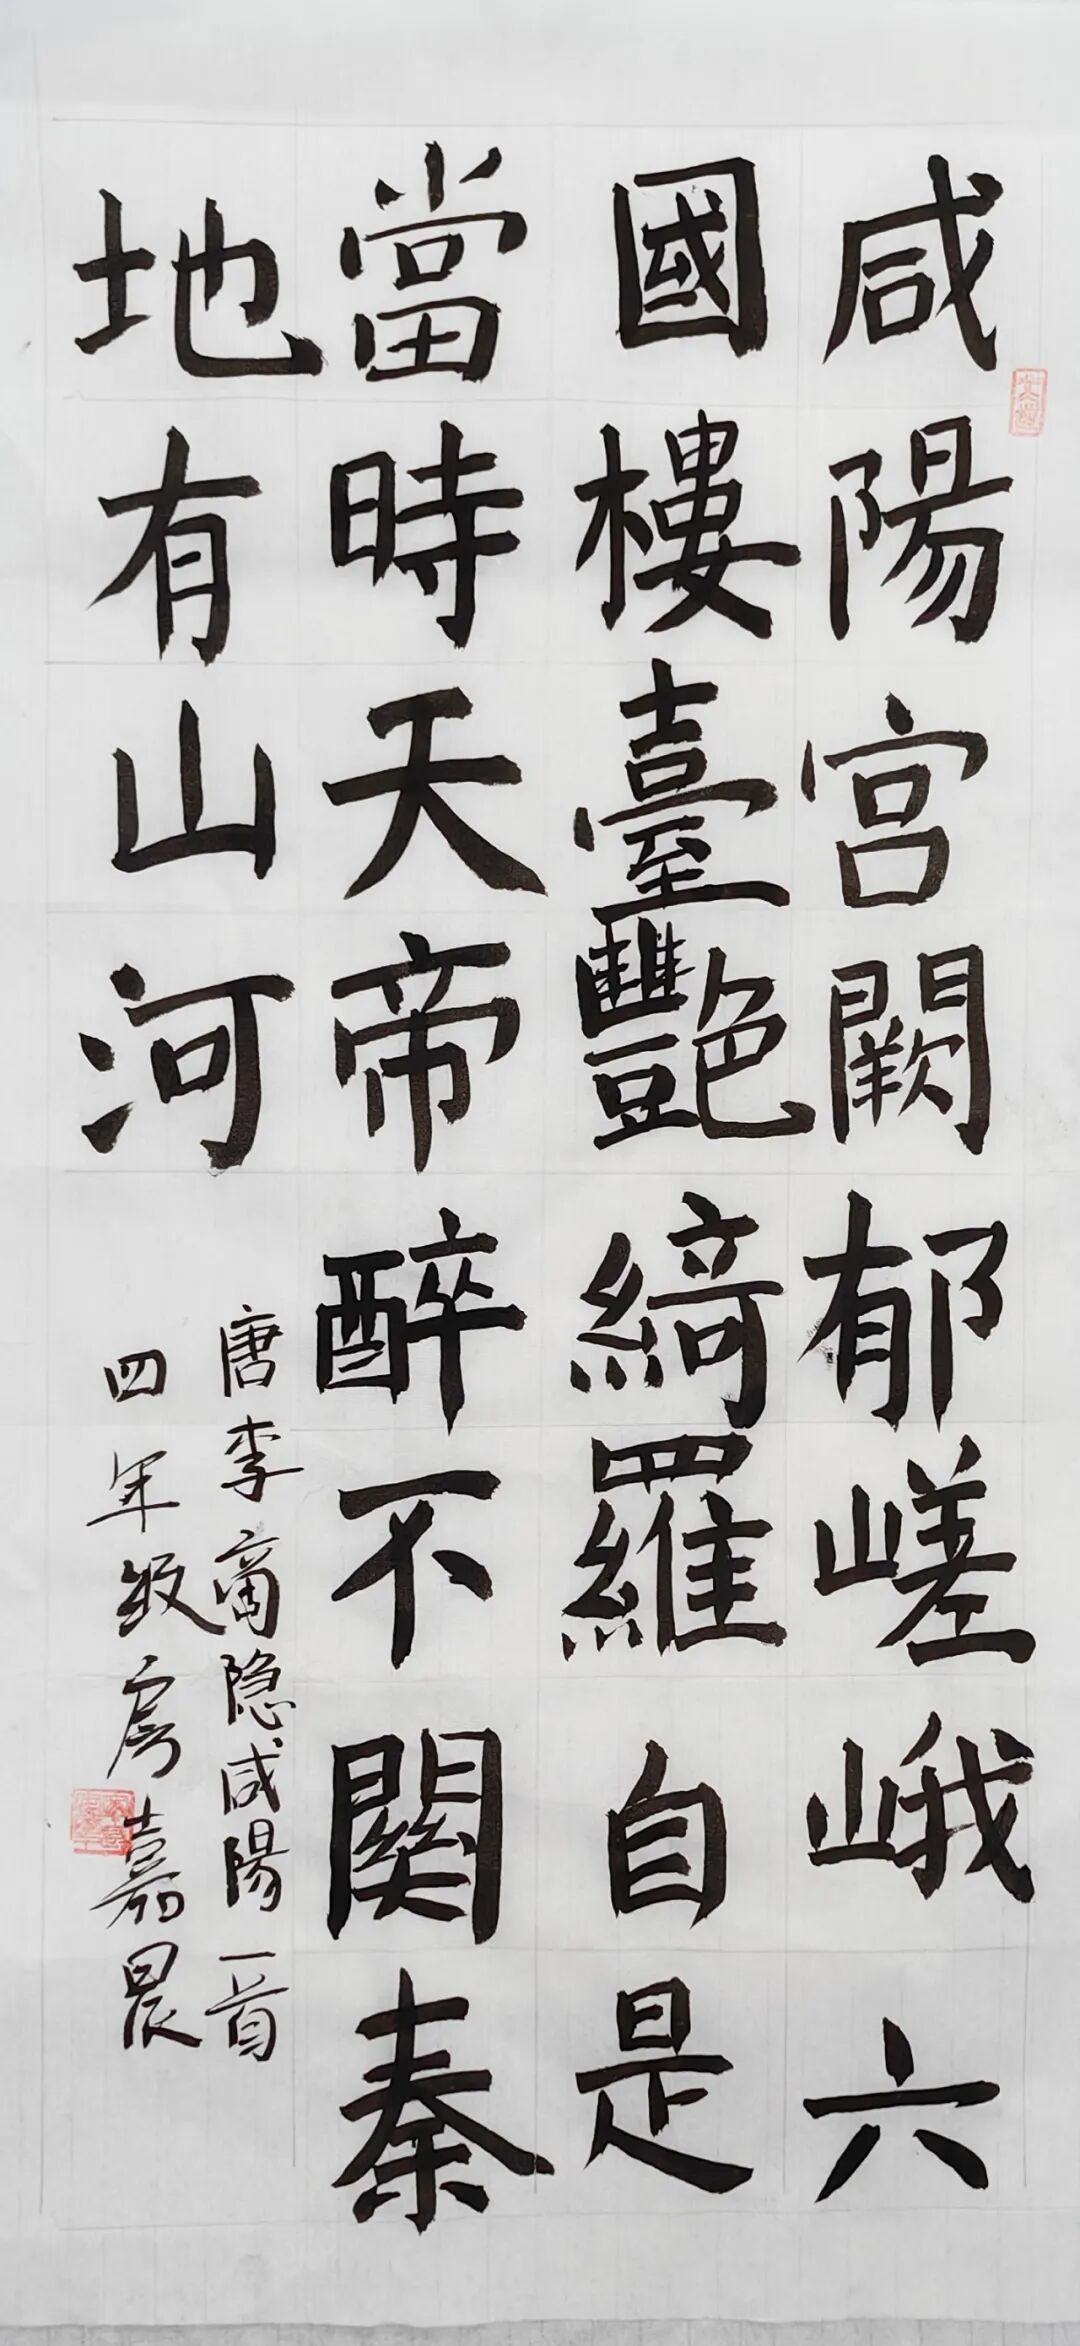 咸陽宫闕郁嵯峨六
國樓臺艷綺羅自是
當時天帝醉不関秦
地有山河
唐李商隐咸陽一首
四年级房嘉晨